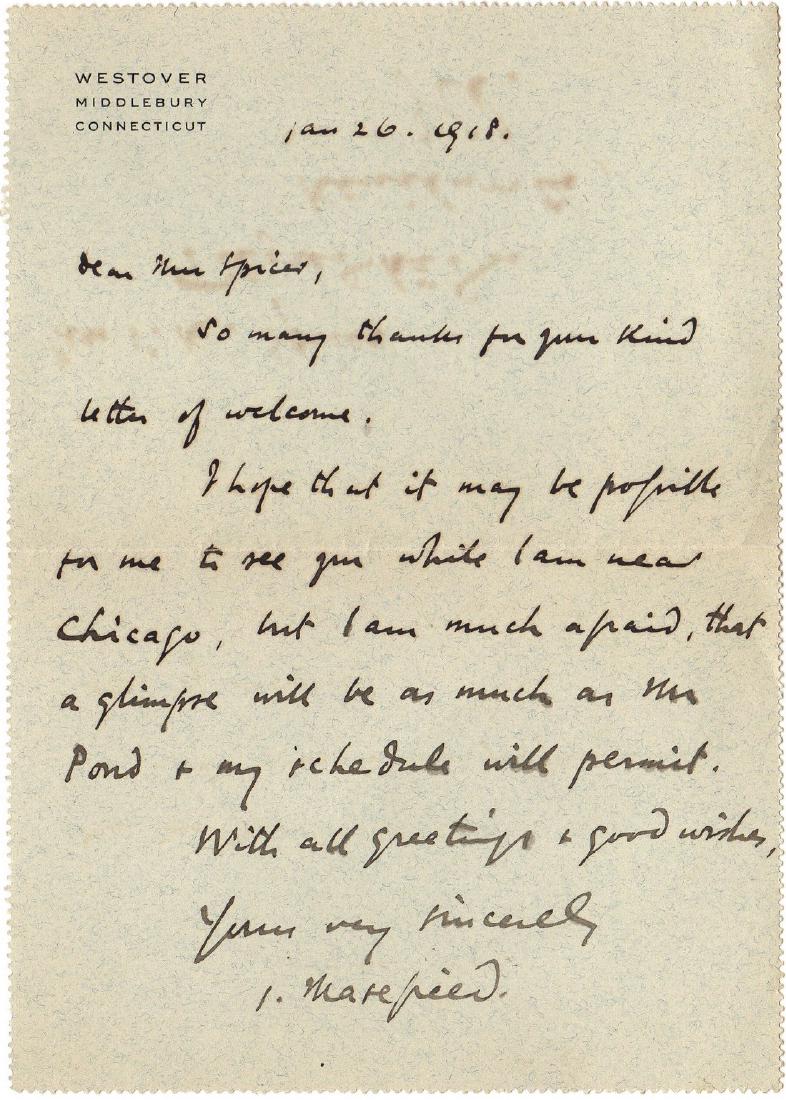 WESTOVER
MIDDLEBURY
CONNECTICUT
Jan 26. 1918.
Dear Mr Spicer,
So many thanks for your kind
letter of welcome.
I hope that it may be possible
for me to see you while I am near
Chicago, but I am much afraid, that
a glimpse will be as much as Mr
Pond + my schedule will permit.
With all greetings + good wishes,
Yours very sincerely
J. Masefield.